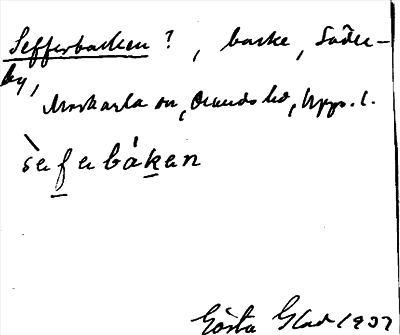 Sefferbacken ? , backe, Söder-
by,
Morkarla sn, Olands hd, Upps. l.
sefebákan
Gösta Glad 1937